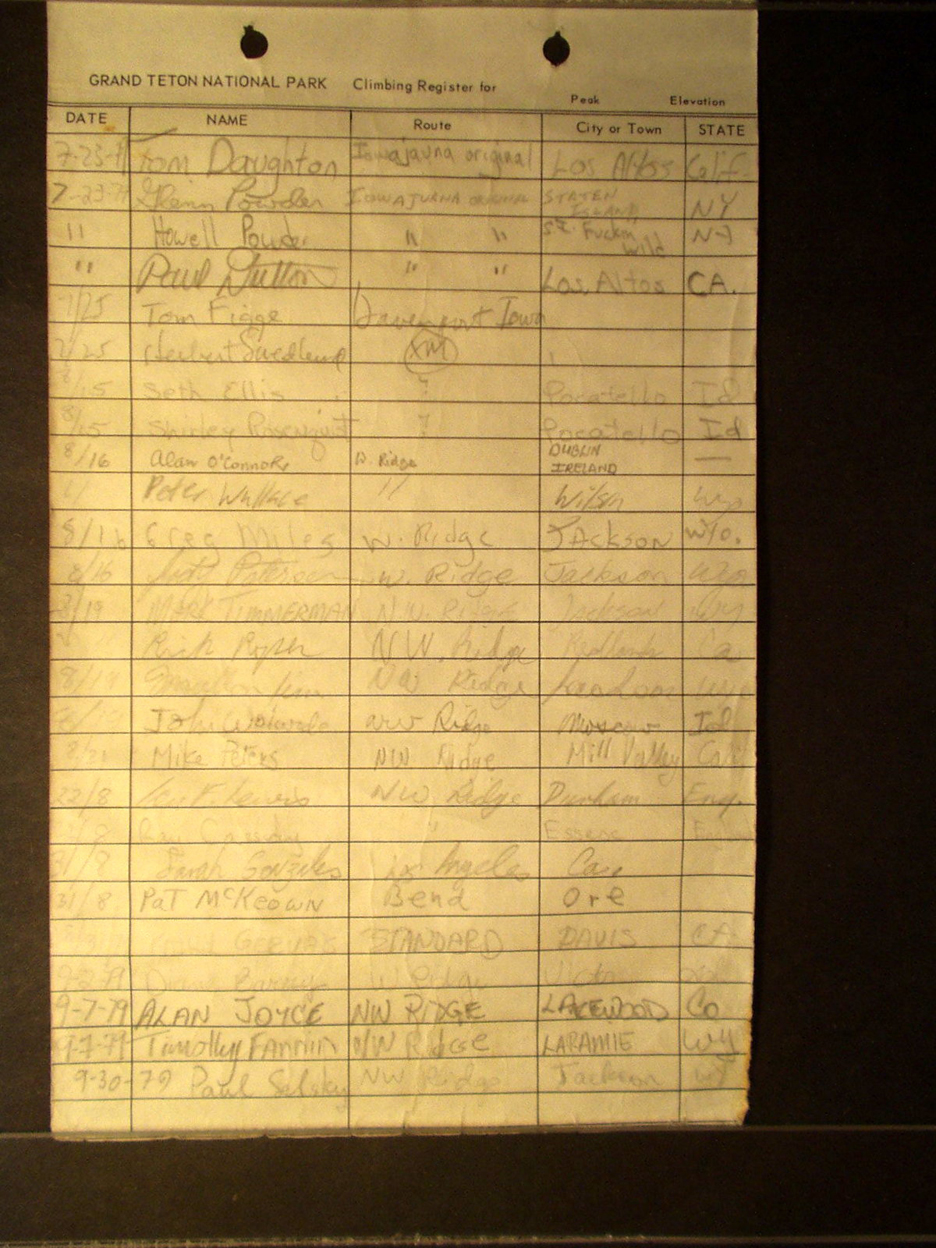 GRAND TETON NATIONAL PARK Climbing Register for
Peak Elevation
DATE NAME Route City or Town STATE
7-23-79 Tom Daughton Iowajayna original Los Altos Calif
7-23-79 Glenn Powder IOWAJURNA ORIGINAL STATEN ISLAND NY
" Howell Powder " " St. Fuckin Wild NJ
" Paul Dutton " " Los Altos CA.
7/25 Tom Figge Davenport Iowa
7/25 Herbert Swedlund
8/15 Seth Ellis ? Pocatello Id
8/15 Shirley Rosenquist ? Pocatello Id
8/16 Alan O'Connor W. Ridge DUBLIN IRELAND —
" Peter Wallace " Wilson Wyo
8/16 Greg Miles W. Ridge JACKSON WYO.
8/16 Petersen W. Ridge Jackson Wyo
8/19 MARK TIMMERMAN N.W. Ridge Jackson Wy
Rick NW. Ridge Redlands Ca
8/19 NW Ridge Wyo
John NW Ridge Moscow Id
8/21 Mike Peters NW Ridge Mill Valley Calif
22/8 F. Lewis NW Ridge Durham Eng.
Ray Cassidy " Essex
31/8 Sarah Gonzales Los Angeles Ca.
31/8 PAT McKEOWN Bend Ore
GERVAIS STANDARD DAVIS CA
9-2-79 W Ridge
9-7-79 ALAN JOYCE NW RIDGE LAKEWOOD Co
9-7-79 Timothy FANNIN NW Ridge LARAMIE WY
9-30-79 Paul Selsky NW Ridge Jackson WY